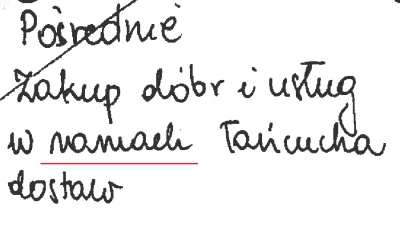 Pośrednie
Zakup dóbr i usług
w ramach łańcucha
dostaw